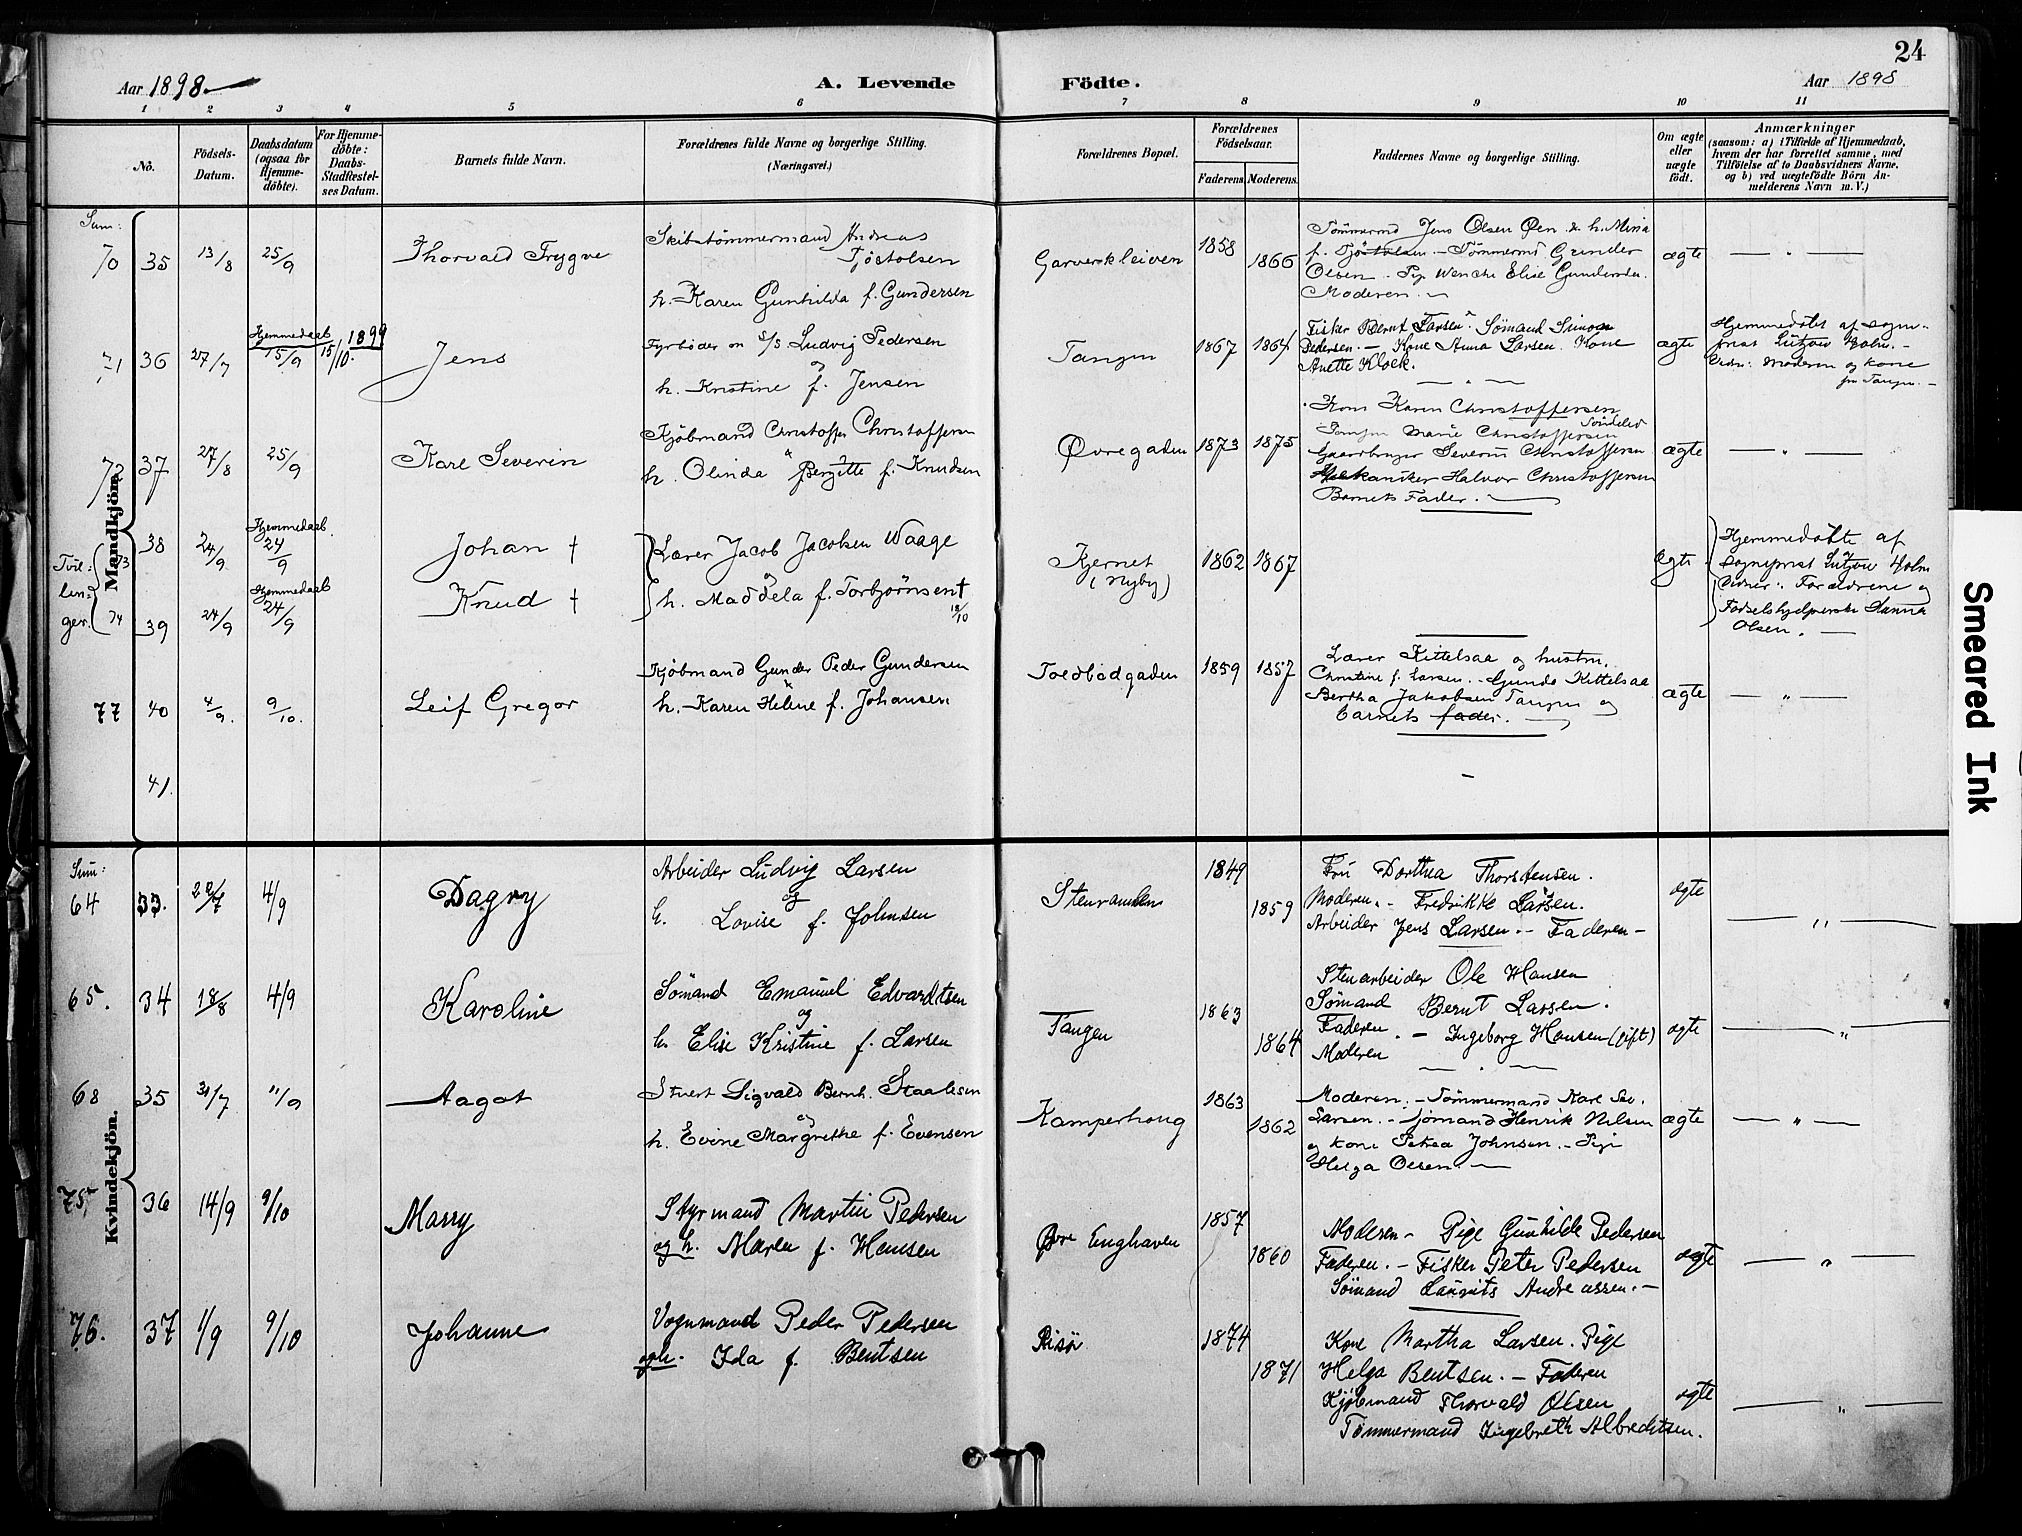 24
Aar 1898
A. Levende
Födte.
Aar 1898
1 2 3 4 5 6 7 8 9 10 11
No.
Födsels-
Datum.
Daabsdatum
(ogsaa for
Hjemme-
döbte).
For Hjemme-
döbte:
Daabs-
Stadfæstel-
ses Datum.
Barnets fulde Navn.
Forældrenes fulde Navne og borgerlige Stilling.
(Næringsvei.)
Forældrenes Bopæl.
Forældrenes
Födselsaar.
Faderens Moderens.
Faddernes Navne og borgerlige Stilling.
Om ægte
eller
uægte
födt.
Anmærkninger
(saasom: a) i Tilfælde af Hjemmedaab,
hvem der har forrettet samme, med
Tilföielse af to Daabsvidners Navne,
og b) ved uægtefödte Börn An-
melderens Navn m.V.)
Mandkjön.
Sum:
70 35 13/8 25/9
Thorvald Trygve
Skibstömmermand Andreas
Tjöstolsen
h. Karen Gunhilda f. Gundersen
Garverskleiven
1858 1866
Tömmermd Jens Olsen Öen & h. Mina
f. Tjöstolsen - Tömmermd Gunder
Olsen. Pige Wenche Elise Gundersen
Moderen.
ægte
71 36 27/7
Hjemmedaab
15/9
1899
15/10.
Jens
Fyrböder on S/S Ludvig Pedersen
og
h. Kristine f. Jensen
Tangen
1867 1864
Fisker Bernt Larsen. Sömand Simon
Pedersen. - Kone Anna Larsen. Kone
Anette Klock.
ægte
Hjemmedöbt af sogne-
prest Lützow Holm. -
Vidn: Moderen og kone
fra Tangen. -
72 37 27/8 25/9
Karl Severin
Kjöbmand Christoffer Christoffersen
h. Olinda Bergitte f. Knudsen
Øvregaden
1873 1875
Kone Karen Christoffersen
Söndeled
Marie Christoffersen
Gaardbruger Severin Christoffersen
Mekaniker Halvor Christoffersen
Barnets Fader.
ægte
Tvil-
lin-
ger.
73 38 24/9
Hjemmedaab.
24/9
Johan †
Lærer Jacob Jacobsen Waage
og
74 39 24/9
Hjemmedaab
24/9
Knud †
h. Maddela f. Torbjørnsen †
18/10
Kjernet
(Nyby)
1862 1867
ægte
Hjemmedöbte af
sogneprest Lützow Holm
Vidner: Forældrene og
Födselshjelperske Hanna
Olsen.
77 40 4/9. 9/10.
Leif Gregor
Kjöbmand Gunder Peder Gundersen
h. Karen Helene f. Johansen
Toldbodgaden
1859 1857
Lærer Kittelsaa og hustru
Christine f. Larsen. - Gunda Kittelsaa
Bertha Jakobsen Tangen og
barnets fader.
ægte
41.
Kvindekjön.
Sum:
64 33. 22/7 4/9
Dagny
Arbeider Ludvig Larsen
og
h. Lovise f. Johnsen
1849 1859
Fru Dorthea Thorstensen.
Moderen. - Fredrikke Larsen.
Arbeider Jens Larsen. - Faderen -
ægte
65. 34 18/8 4/9
Karoline
Sömand Emanuel Edvardtsen
og
h. Elise Kristine f. Larsen
Tangen
1863 1864
Stenarbeider Ole Hansen
Sömand Bernt Larsen.
Faderen. - Ingeborg Hansen (gift)
Moderen
ægte
68 35 31/7 11/9
Aagot
Stuert Sigvald Bernh. Staalesen
og
h. Evine Margrethe f. Evensen
Kamperhoug
1863 1862
Moderen. - Tömmermand Karl Sev.
Larsen. - Sömand Henrik Nilsen
og kone Petrea Johnsen. - Pige
Helga Olsen.
ægte
75 36 14/9 9/10
Marry
Styrmand Martin Pedersen
og h. Maren f. Hansen
Øvre Enghaven
1857 1860
Moderen - Pige Gunhilde Pedersen
Faderen. - Fisker Peter Pedersen
Sömand Laurits Andreassen. -
ægte
76. 37 1/9 9/10
Johanne
Vognmand Peder Pedersen
og h. Ida f. Bentsen
Risör
1874 1871
Kone Martha Larsen. Pige
Helga Bentsen. - Faderen
Kjöbmand Thorvald Olsen
Tømmermand Ingebreth Albrechtsen.
ægte
Smeared Ink